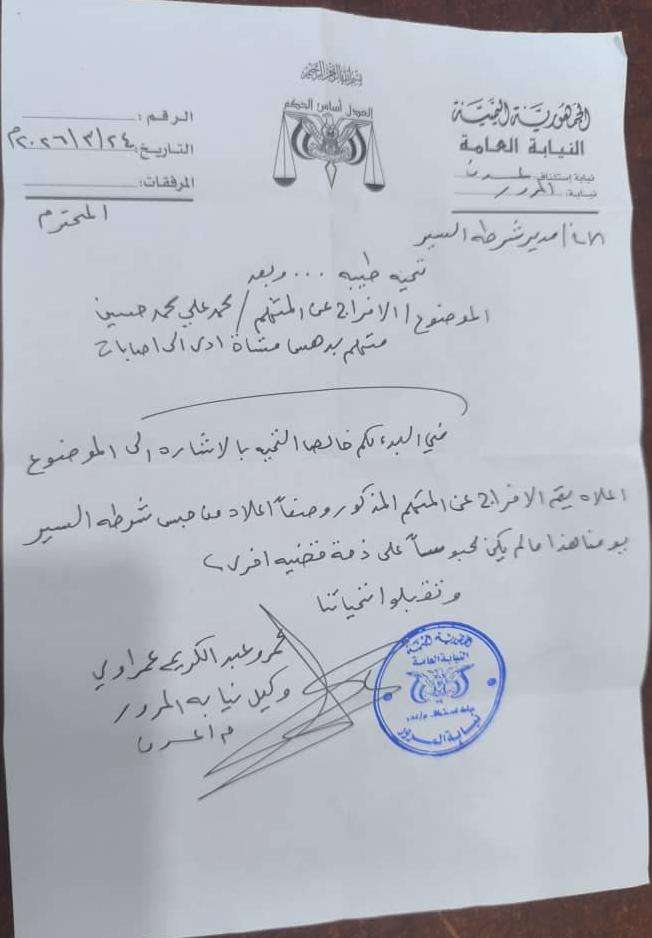 بسم الله الرحمن الرحيم
العدل أساس الحكم
الجمهورية اليمنية
النيابة العامة
نيابة إستئناف
نيابة: المرور
الرقم:
التاريخ: ٢٠٢٦/٣/٢٤م
المرفقات:
الاخ/ مدير شرطه السير المحترم
تحيه طيبه ... وبعد
الموضوع/ الافراج عن المتهم/ محمد علي محمد حسين
متهم بدهس مشاة ادى الى اصابات
في البدء لكم خالص التحيه بالاشاره الى الموضوع
اعلاه يتم الافراج عن المتهم المذكور وصفاً اعلاه من حبس شرطه السير
يومنا هذا مالم يكن محبوساً على ذمة قضيه اخرى
وتقبلوا تحياتنا
عمرو عبدالكريم عمراوي
وكيل نيابه المرور
الجمهورية اليمنية
النيابة العامة
نيابة المرور